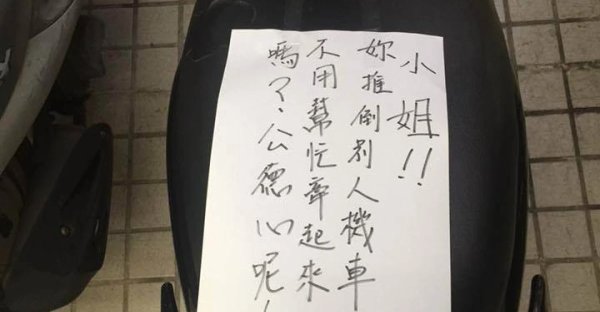 小姐!!
妳推倒別人機車
不用幫忙牽起來
嗎?公德心呢